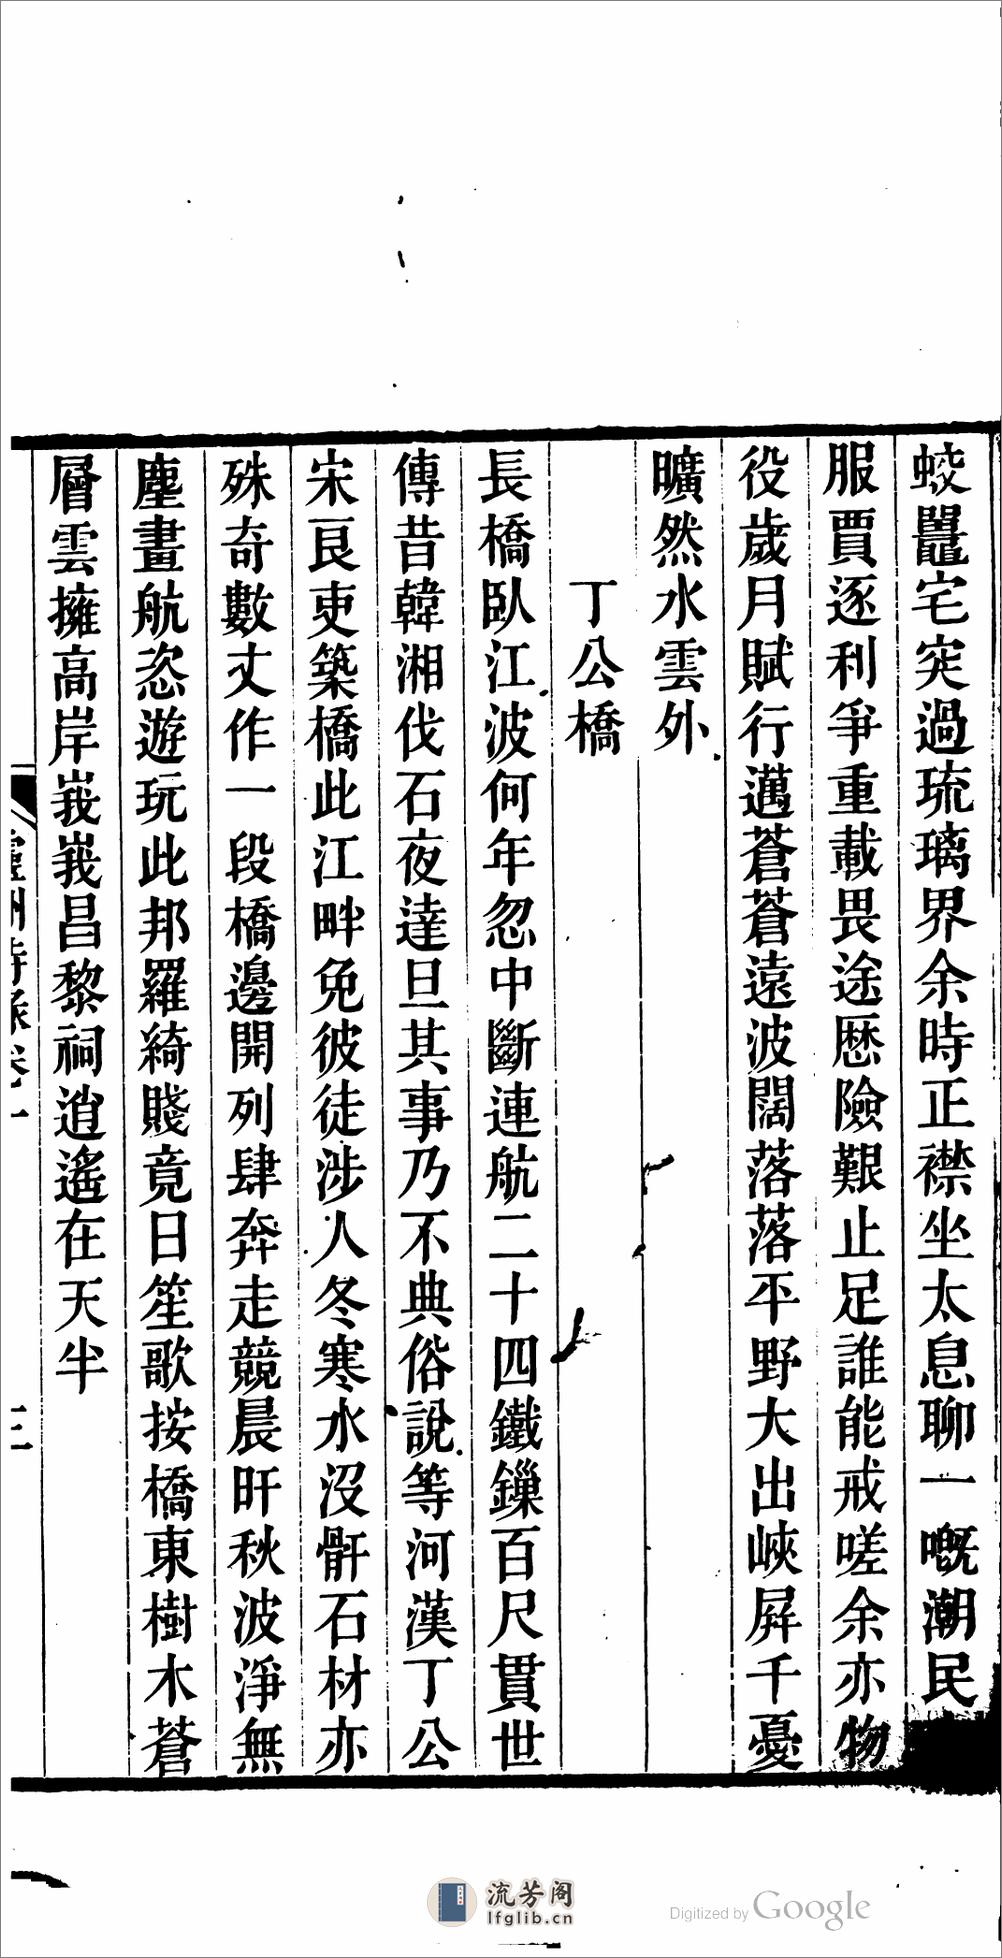 蛟鼉宅突過琉璃界余時正襟坐太息聊一嘅潮民
服賈逐利爭重載畏途歷險艱止足誰能戒嗟余亦物
役歲月賦行邁蒼蒼遠波闊落落平野大出峽屛千憂
曠然水雲外
丁公橋
長橋臥江波何年忽中斷連航二十四鐵鏁百尺貫世
傳昔韓湘伐石夜達旦其事乃不典俗說等河漢丁公
宋良吏築橋此江畔免彼徒涉人冬寒水沒骭石材亦
殊奇數丈作一段橋邊開列肆奔走競晨旰秋波淨無
塵畫航恣遊玩此邦羅綺賤竟日笙歌按橋東樹木蒼
層雲擁高岸峩峩昌黎祠逍遙在天半
三
流芳阁
lfglib.cn
Digitized by Google